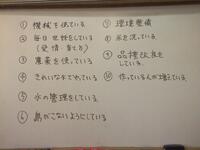 ① 機械を使っている
② 毎日世話をしている
(愛情・育てる)
③ 農薬を使っている
④ きれいな水でやっている
⑤ 水の管理をしている
⑥ 鳥がこないようにしている
⑦ 環境整備
⑧ 米を洗っている
⑨ 品種改良を
している。
⑩ 作っている人が増えている。